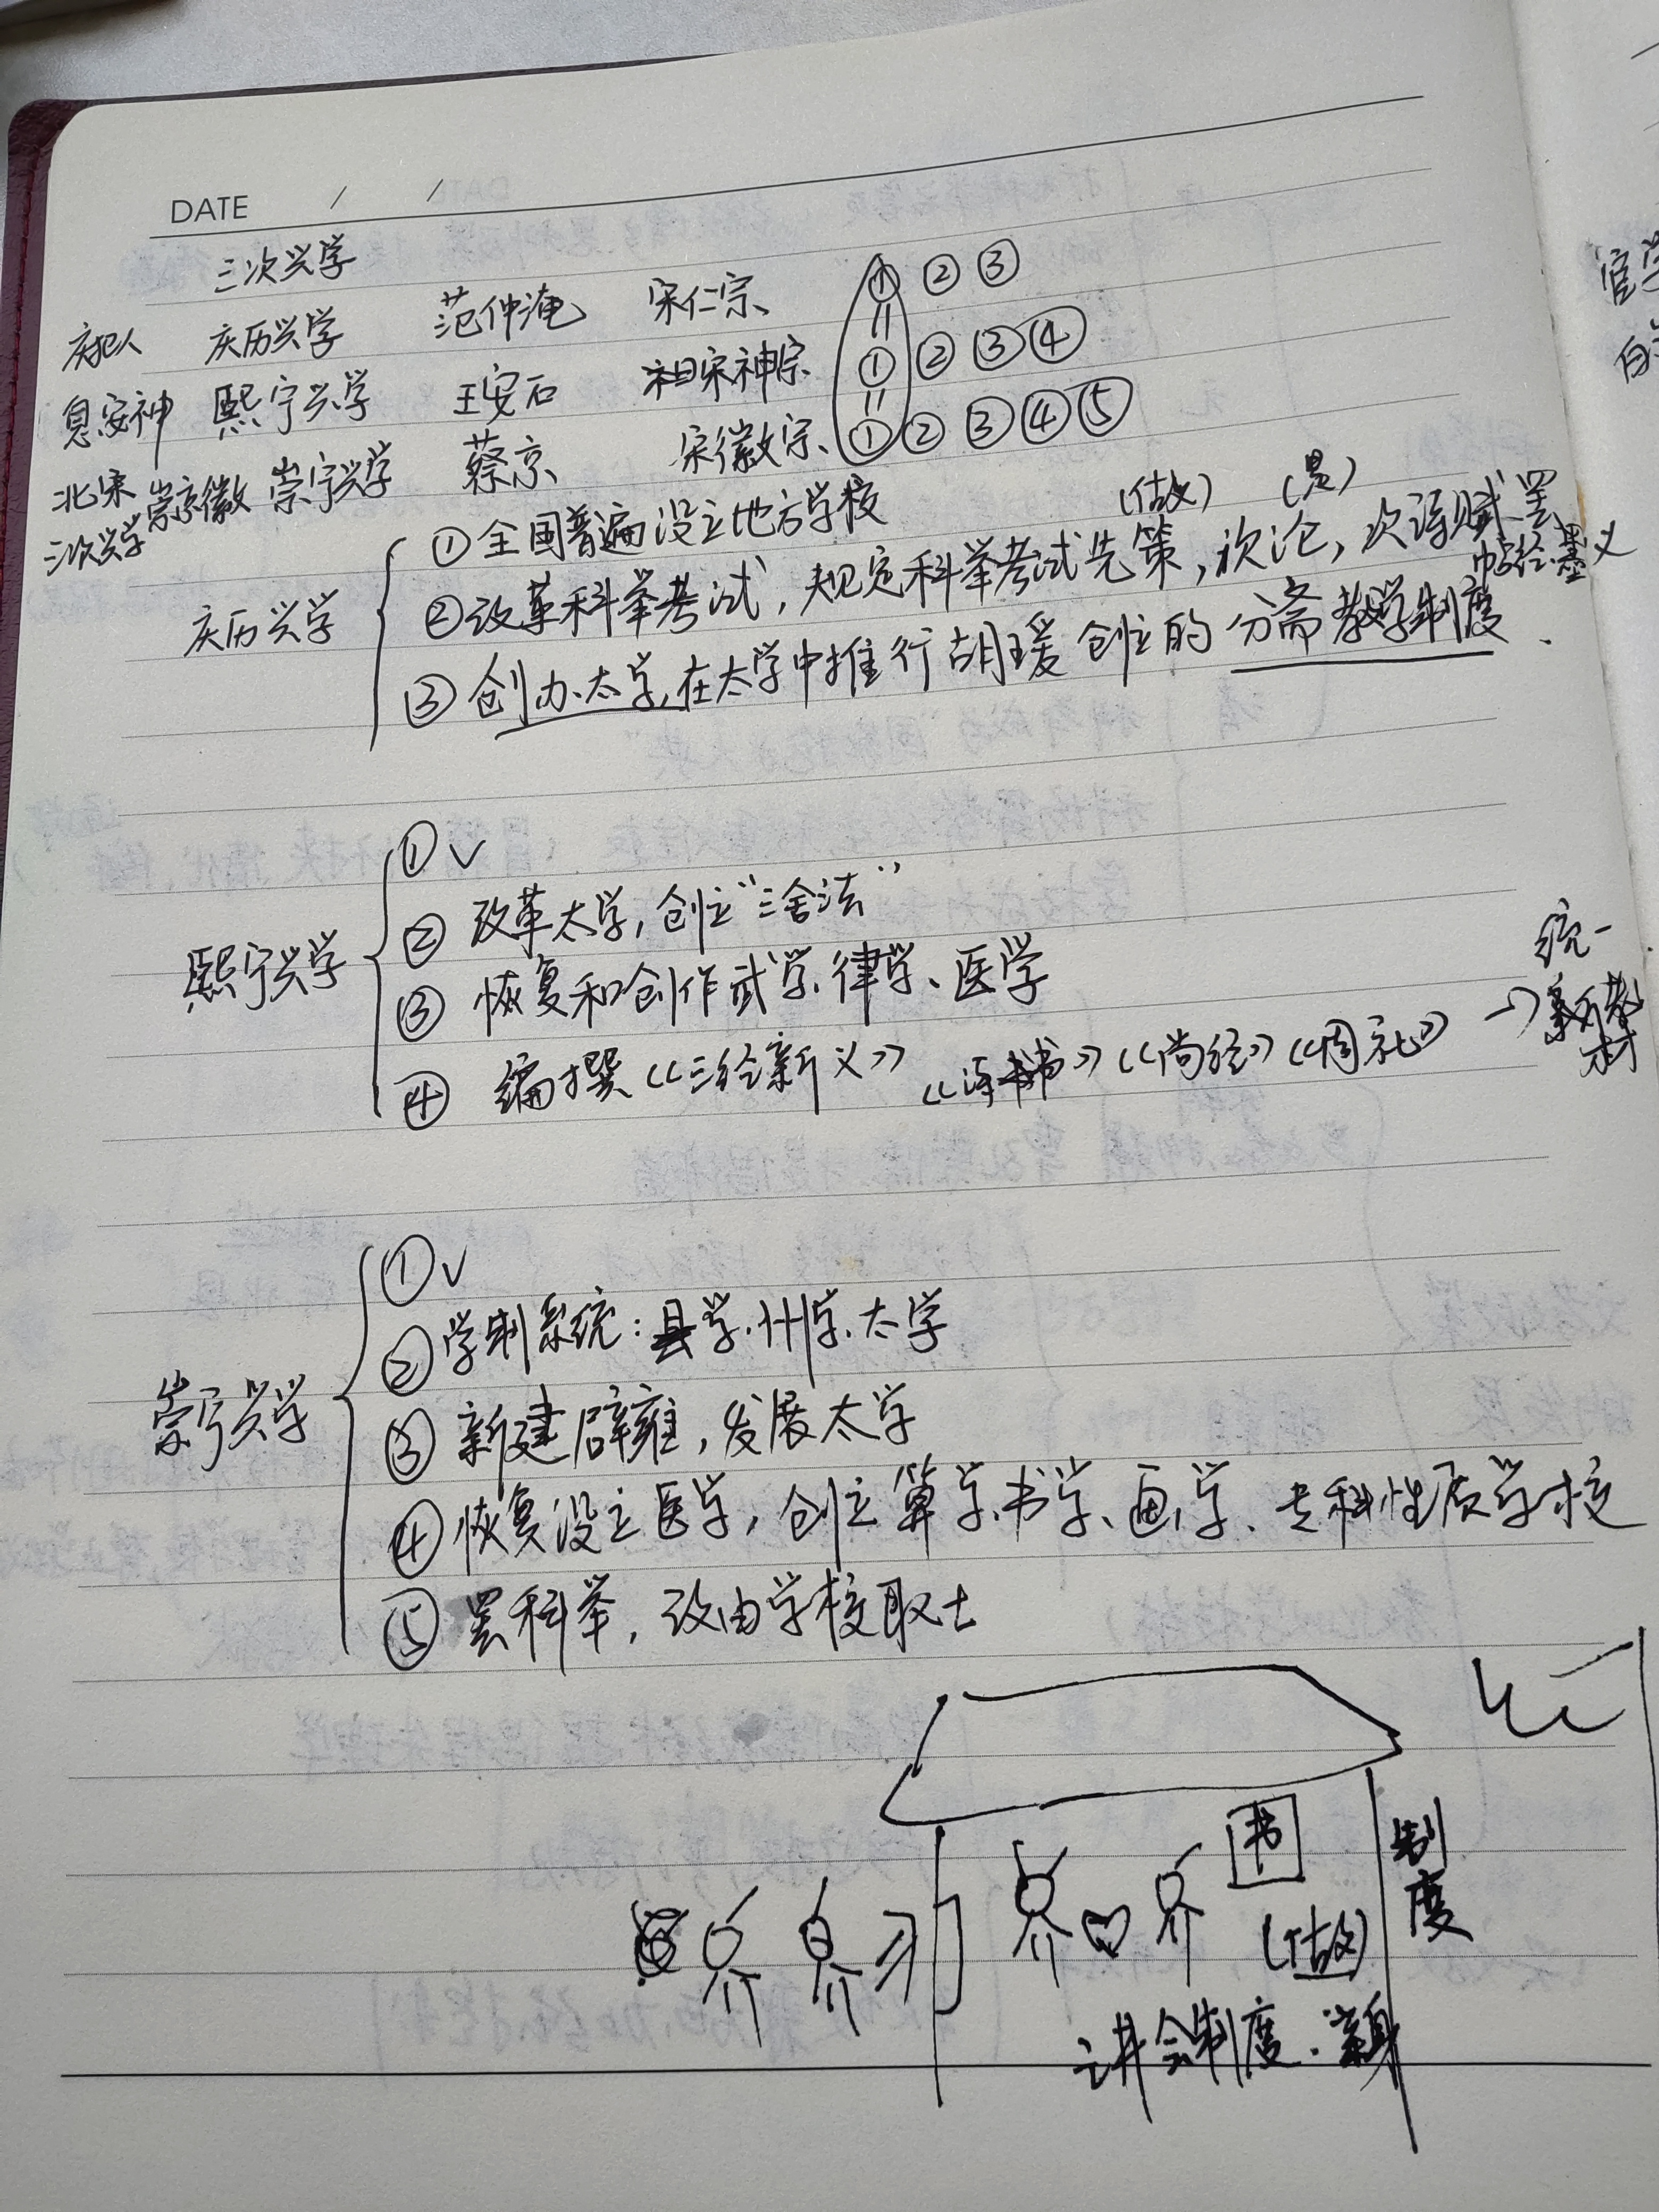 DATE / /
三次兴学
庆历兴学 范仲淹 宋仁宗 ① ② ③
息安神 熙宁兴学 王安石 宋神宗 ① ② ③ ④
北宋三次兴学 崇京徽 崇宁兴学 蔡京 宋徽宗 ① ② ③ ④ ⑤
庆历兴学
① 全国普遍设立地方学校
(做) (思)
② 改革科举考试，规定科举考试先策，次论，次诗赋罢帖经墨义
③ 创办太学,在太学中推行胡瑗创立的分斋教学制度.
熙宁兴学
① ✓
② 改革太学，创立“三舍法”
③ 恢复和创作武学、律学、医学
④ 编撰《三经新义》 《诗书》《尚经》《周礼》 → 统一新教材
崇宁兴学
① ✓
② 学制系统：县学、州学、太学
③ 新建辟雍，发展太学
④ 恢复设立医学，创立算学、书学、画学、专科性质学校
⑤ 罢科举，改由学校取士
书
制度
(做)
讲会制度.
官学